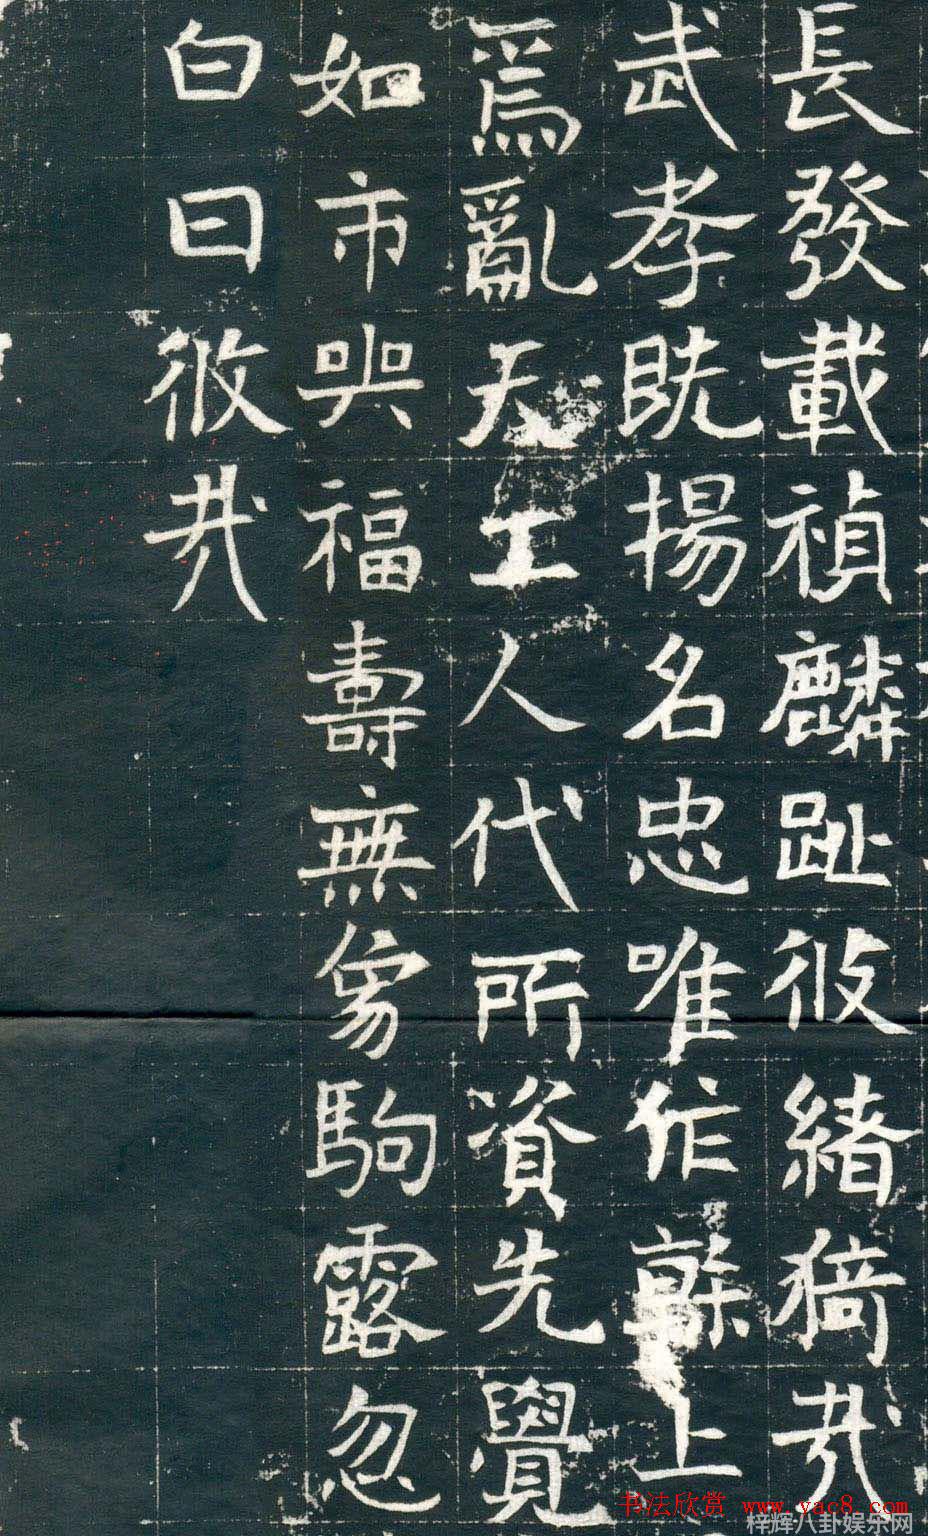 長發載禎麟趾彼緒猗哉
武孝旣揚名忠唯作幹上
爲亂天工人代所資先覺
如市與福壽無爽駒露忽
白日彼哉
书法欣赏 www.yac8.com
梓辉八卦娱乐网